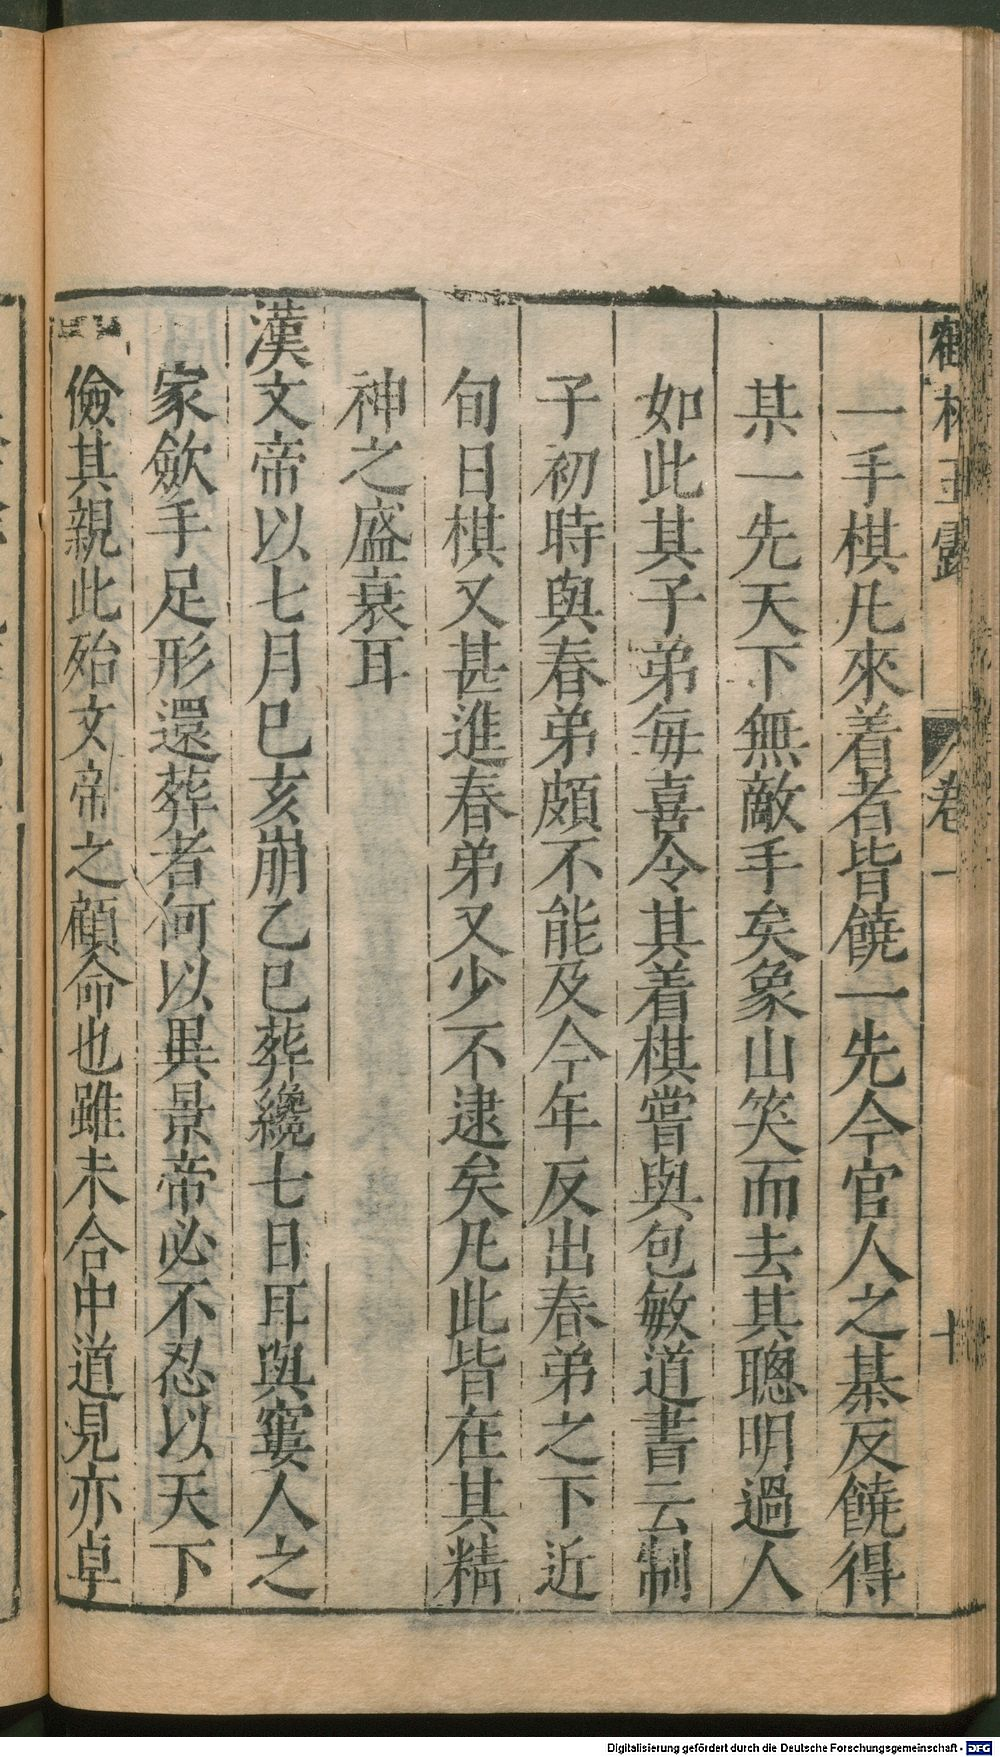 鶴林玉露
卷一
十
一手棋凡來着者皆饒一先今官人之棊反饒得
某一先天下無敵手矣象山笑而去其聰明過人
如此其子弟每喜令其着棋嘗與包敏道書云制
子初時與春弟頗不能及今年反出春弟之下近
旬日棋又甚進春弟又少不逮矣凡此皆在其精
神之盛衰耳
漢文帝以七月巳亥崩乙巳葬纔七日耳與窶人之
家斂手足形還葬者何以異景帝必不忍以天下
儉其親此殆文帝之顧命也雖未合中道見亦卓
Digitalisierung gefördert durch die Deutsche Forschungsgemeinschaft - DFG